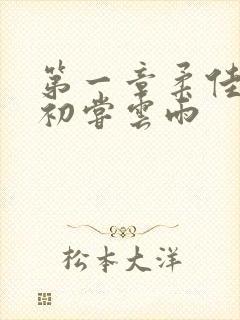 第一章柔佳
初尝雲雨
松本大洋